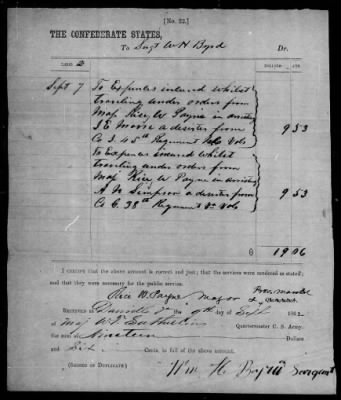 [No. 22.]
THE CONFEDERATE STATES,
To Sergt W H Byrd Dr.
DOLLARS. CTS.
Sept 7 To Expenses incurred whilst
traveling under orders from
Maj Rice W Payne in arresting
J E Moore a deserter from
Co I. 45th Regiment Vols
9 53
To Expenses incurred whilst
traveling under orders from
Maj Rice W Payne in arresting
A N Simpson a deserter from
Co C. 38th Regiment Va Vols
9 53
$ 19 06
I CERTIFY that the above account is correct and just; that the services were rendered as stated;
and that they were necessary for the public service.
Rice W. Payne, Major &
RECEIVED at Danville Va the 9th day of Sept 186
of Maj W. T. Quartermaster C. S. Army.
the sum of Nineteen Dollars
and Six Cents, in full of the above account.
(SIGNED IN DUPLICATE) Wm H Byrd Sergeant